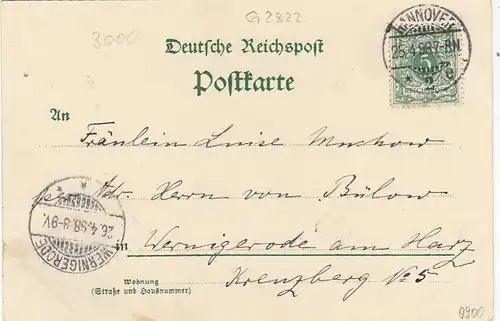 G 2822
3000
Deutsche Reichspost
Postkarte
HANNOVER
25.4.98.7-8N.
* 2 c
5
An
Fräulein Luise Muchow
Adr. Herrn von Bülow
in Wernigerode am Harz
Kreuzberg No 5
Wohnung
(Straße und Hausnummer)
WERNIGERODE
26.4.98.8-9V.
0900